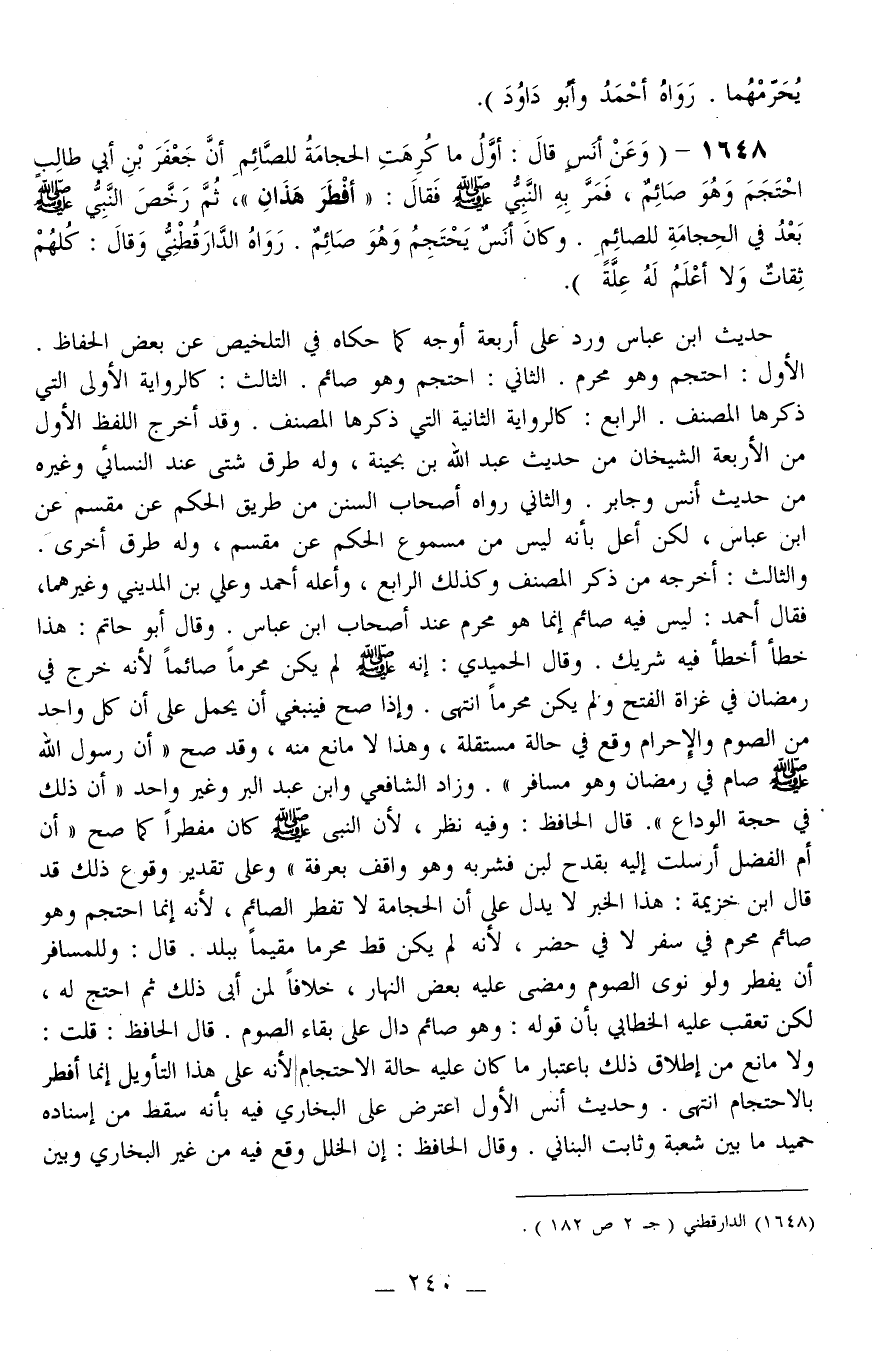 يُحَرِّمْهُما . رَوَاهُ أحْمَدُ وأبُو دَاوُدَ ).
١٦٤٨ - ( وَعَنْ أنَسٍ قالَ : أوَّلُ ما كُرِهَتِ الحِجامَةُ للصَّائِمِ أنَّ جَعْفَرَ بْنِ أبي طالِبٍ
احْتَجَمَ وَهُوَ صَائِمٌ ، فَمَرَّ بِهِ النَّبِيُّ ﷺ فَقالَ : « أفْطَرَ هَذَانِ »، ثُمَّ رَخَّصَ النَّبِيُّ ﷺ
بَعْدُ في الحِجامَةِ للصائِمِ . وكانَ أنَسٌ يَحْتَجِمُ وَهُوَ صَائِمٌ . رَوَاهُ الدَّارَقُطْنِيُّ وَقالَ : كُلهُمْ
ثِقاتٌ وَلا أعْلَمُ لَهُ عِلَّةً ).
حديث ابن عباس ورد على أربعة أوجه كما حكاه في التلخيص عن بعض الحفاظ .
الأول : احتجم وهو محرم . الثاني : احتجم وهو صائم . الثالث : كالرواية الأولى التي
ذكرها المصنف . الرابع : كالرواية الثانية التي ذكرها المصنف . وقد أخرج اللفظ الأول
من الأربعة الشيخان من حديث عبد الله بن بحينة ، وله طرق شتى عند النسائي وغيره
من حديث أنس وجابر . والثاني رواه أصحاب السنن من طريق الحكم عن مقسم عن
ابن عباس ، لكن أعل بأنه ليس من مسموع الحكم عن مقسم ، وله طرق أخرى .
والثالث : أخرجه من ذكر المصنف وكذلك الرابع ، وأعله أحمد وعلي بن المديني وغيرهما،
فقال أحمد : ليس فيه صائم إنما هو محرم عند أصحاب ابن عباس . وقال أبو حاتم : هذا
خطأ أخطأ فيه شريك . وقال الحميدي : إنه ﷺ لم يكن محرماً صائماً لأنه خرج في
رمضان في غزاة الفتح ولم يكن محرماً انتهى . وإذا صح فينبغي أن يحمل على أن كل واحد
من الصوم والإحرام وقع في حالة مستقلة ، وهذا لا مانع منه ، وقد صح « أن رسول الله
ﷺ صام في رمضان وهو مسافر » . وزاد الشافعي وابن عبد البر وغير واحد « أن ذلك
في حجة الوداع ». قال الحافظ : وفيه نظر ، لأن النبى ﷺ كان مفطراً كما صح « أن
أم الفضل أرسلت إليه بقدح لبن فشربه وهو واقف بعرفة » وعلى تقدير وقوع ذلك قد
قال ابن خزيمة : هذا الخبر لا يدل على أن الحجامة لا تفطر الصائم ، لأنه إنما احتجم وهو
صائم محرم في سفر لا في حضر ، لأنه لم يكن قط محرما مقيماً ببلد . قال : وللمسافر
أن يفطر ولو نوى الصوم ومضى عليه بعض النهار ، خلافاً لمن أبى ذلك ثم احتج له ،
لكن تعقب عليه الخطابي بأن قوله : وهو صائم دال على بقاء الصوم . قال الحافظ : قلت :
ولا مانع من إطلاق ذلك باعتبار ما كان عليه حالة الاحتجام لأنه على هذا التأويل إنما أفطر
بالاحتجام انتهى . وحديث أنس الأول اعترض على البخاري فيه بأنه سقط من إسناده
حميد ما بين شعبة وثابت البناني . وقال الحافظ : إن الخلل وقع فيه من غير البخاري وبين
(١٦٤٨) الدارقطني ( جـ ٢ ص ١٨٢ ) .
ـ ٢٤٠ ـ